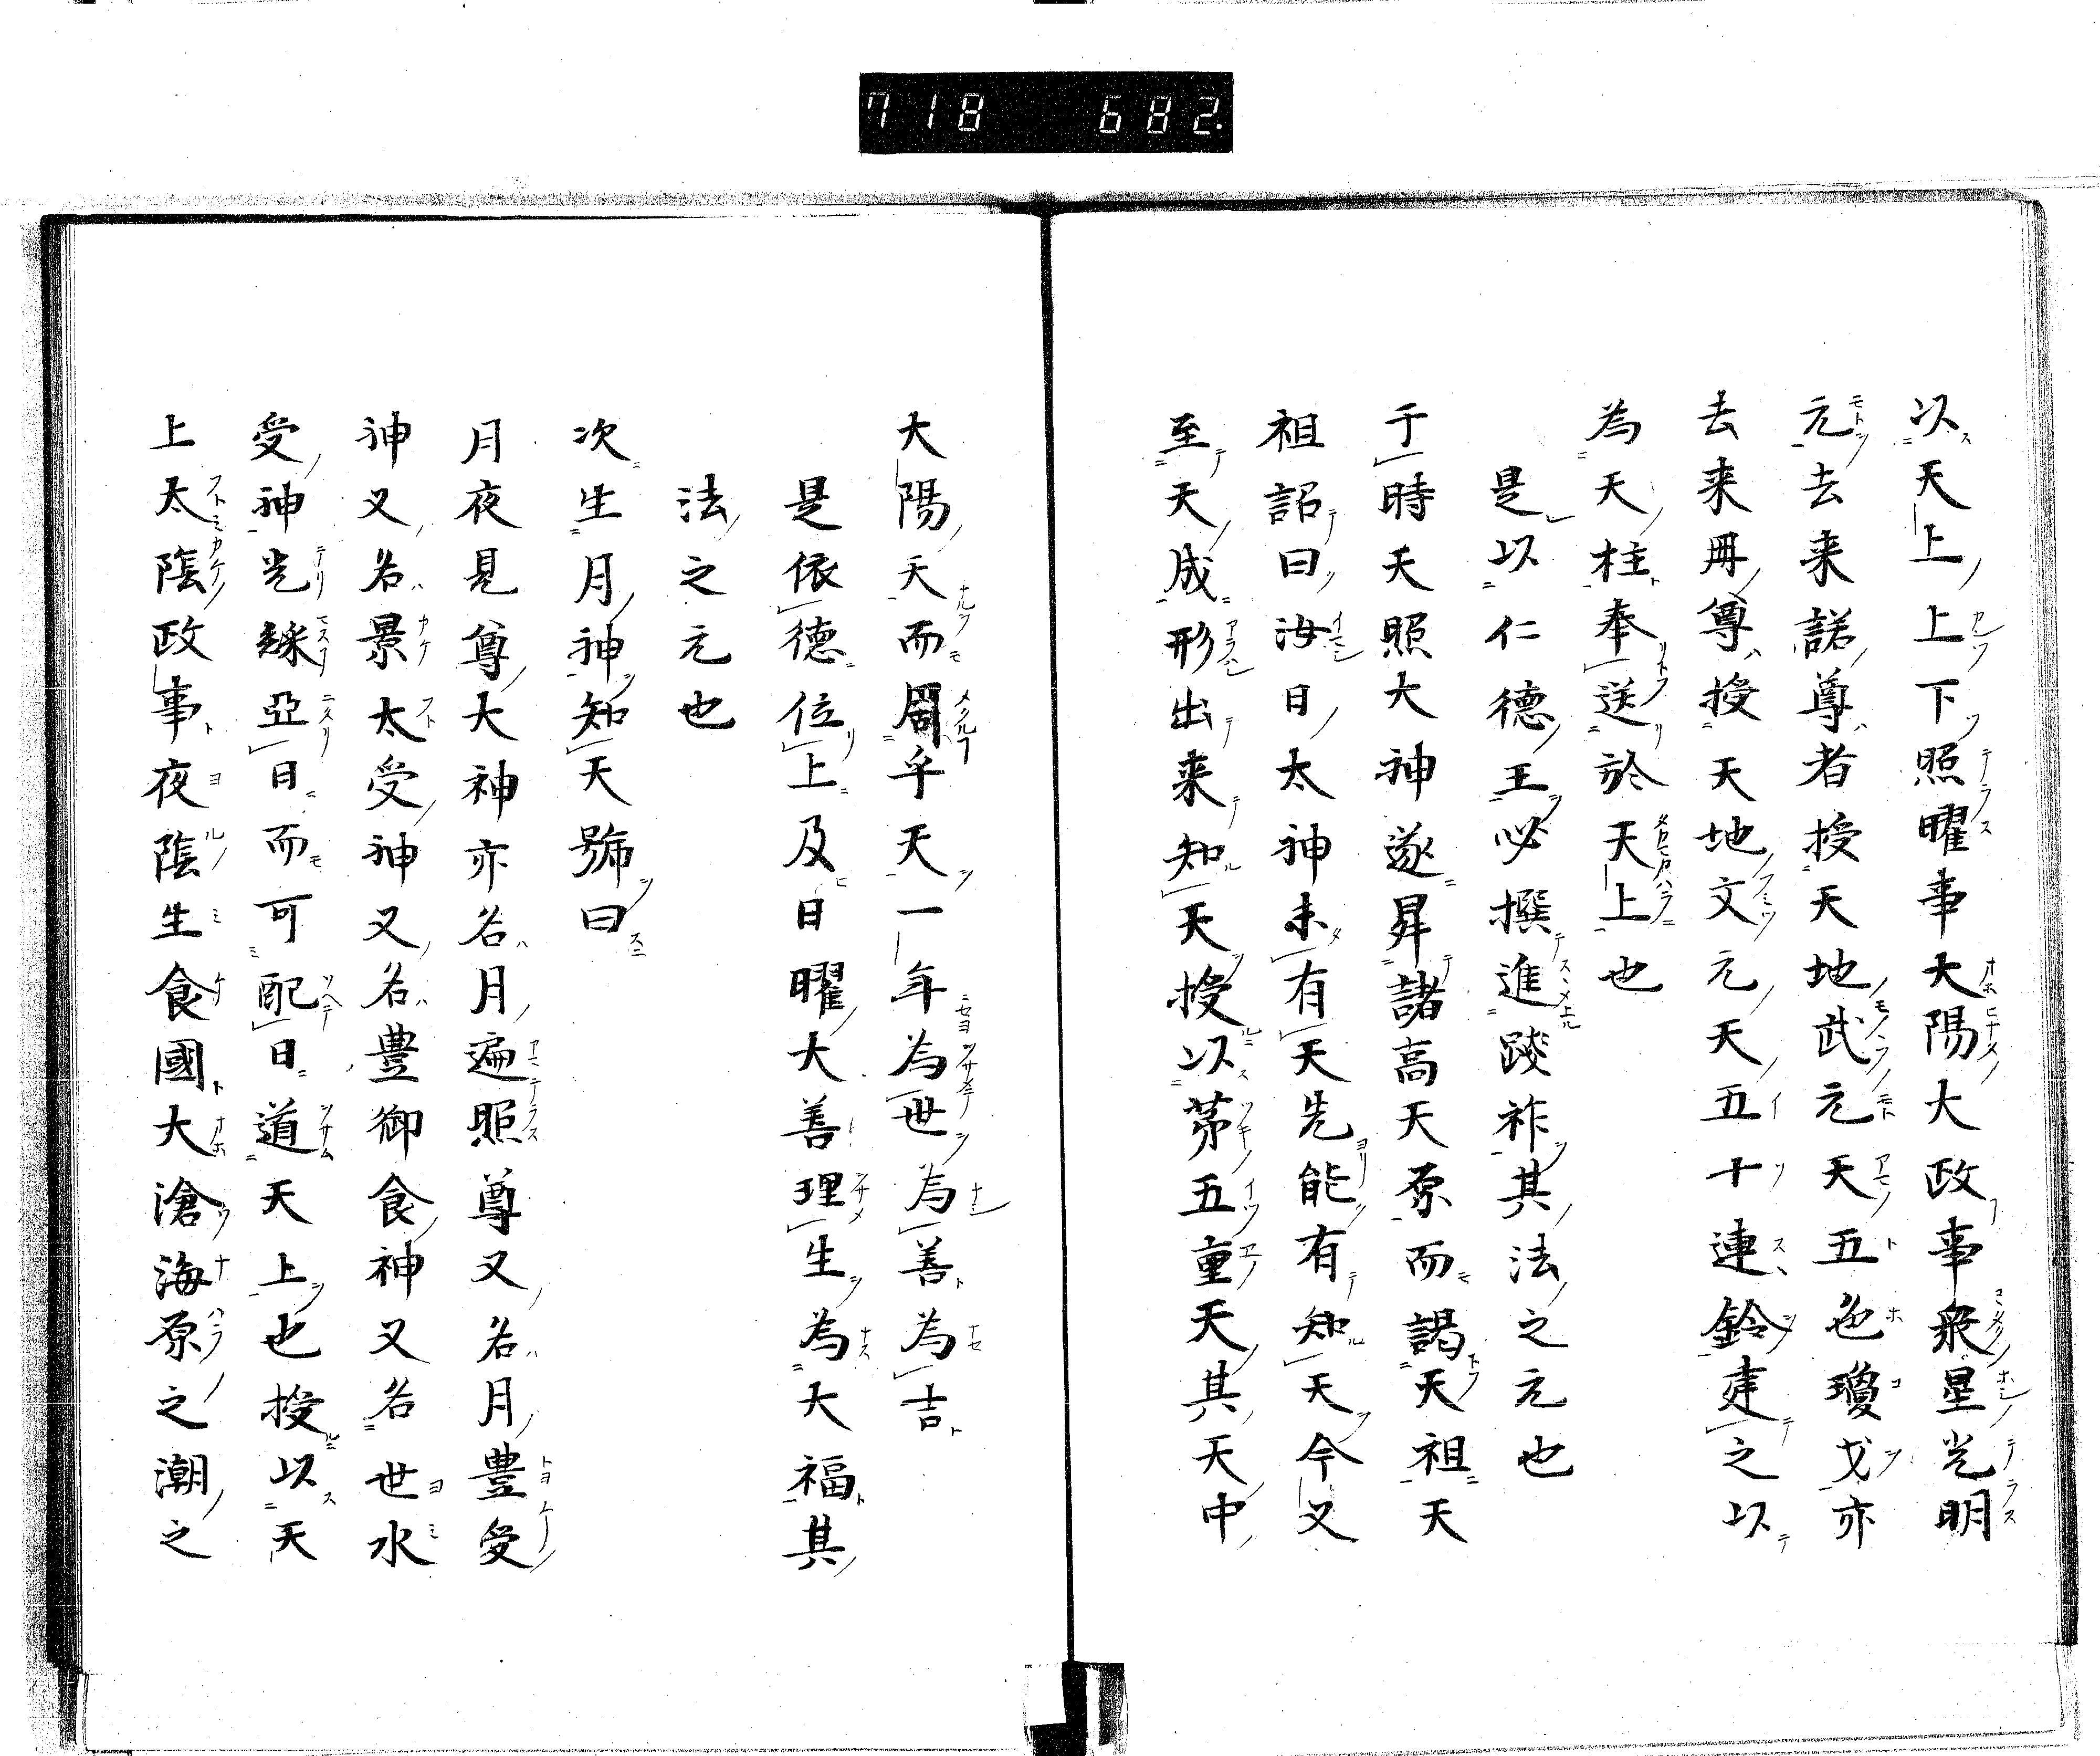 718 682.
以天上上下照曜事大陽大政事衆星光明
元去来諾尊者授天地武元天五色瓊戈亦
去来冊尊授天地文元天五十連鈴建之以
為天柱奉送於天上也
是以仁徳王必撰進踐祚其法之元也
于時天照大神遂昇諸高天原而謁天祖天
祖詔曰汝日太神未有天先能有知天今又
至天成形出来知天授以苐五重天其天中
大陽天而周乎天一年為世為善為吉
是依徳位上及日曜大善理生為大福其
法之元也
次生月神知天號曰
月夜見尊大神亦名月遍照尊又名月豊受
神又名景太受神又名豊御食神又名世水
受神光綵亞日而可配日道天上也授以天
上太陰政事夜陰生食國大滄海原之潮之